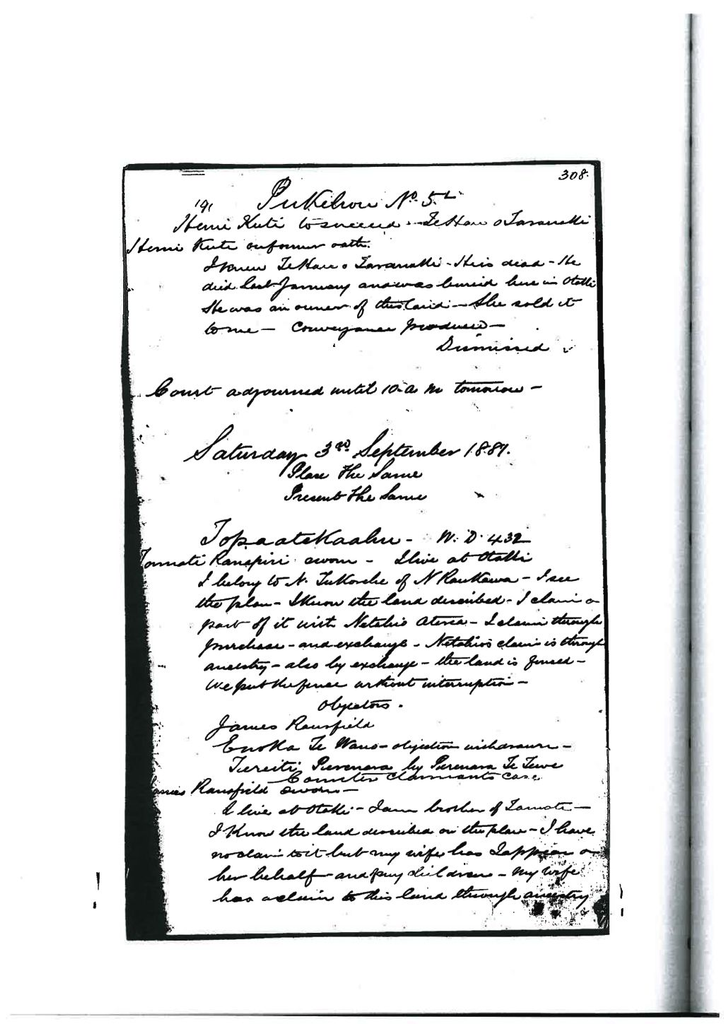 308.
191 Pukehou No. 5L
Hemi Kuti to succeed Te Hau o Taranaki
Hemi Kuti on former oath.
I knew Te Hau o Taranaki - He is dead - He
died last January and was buried here in Otaki
He was an owner of this land - She sold it
to me - Conveyance produced -
Dismissed
Court adjourned until 10 a m tomorrow -
Saturday 3rd September 1887.
Place the Same
Present the Same
Topaatekaahu - W.D. 432
Ranapiri sworn - I live at Otaki
I belong to N. Tukorehe of N Raukawa - I see
the plan - I know the land described - I claim a
part of it with Natahio - I claim through
purchase - and exchange - Natahio's claim is through
ancestry - also by exchange - the land is fenced -
We put the fence without interruption -
Objectors.
James Ransfield
Enoka Te Wano - objection withdrawn -
by Te Tewe
Counter claimants case
James Ransfield sworn -
I live at Otaki - I am brother of
I know the land described on the plan - I have
no claim to it but my wife has I appear on
her behalf - and my children - My wife
has a claim to this land through ancestry